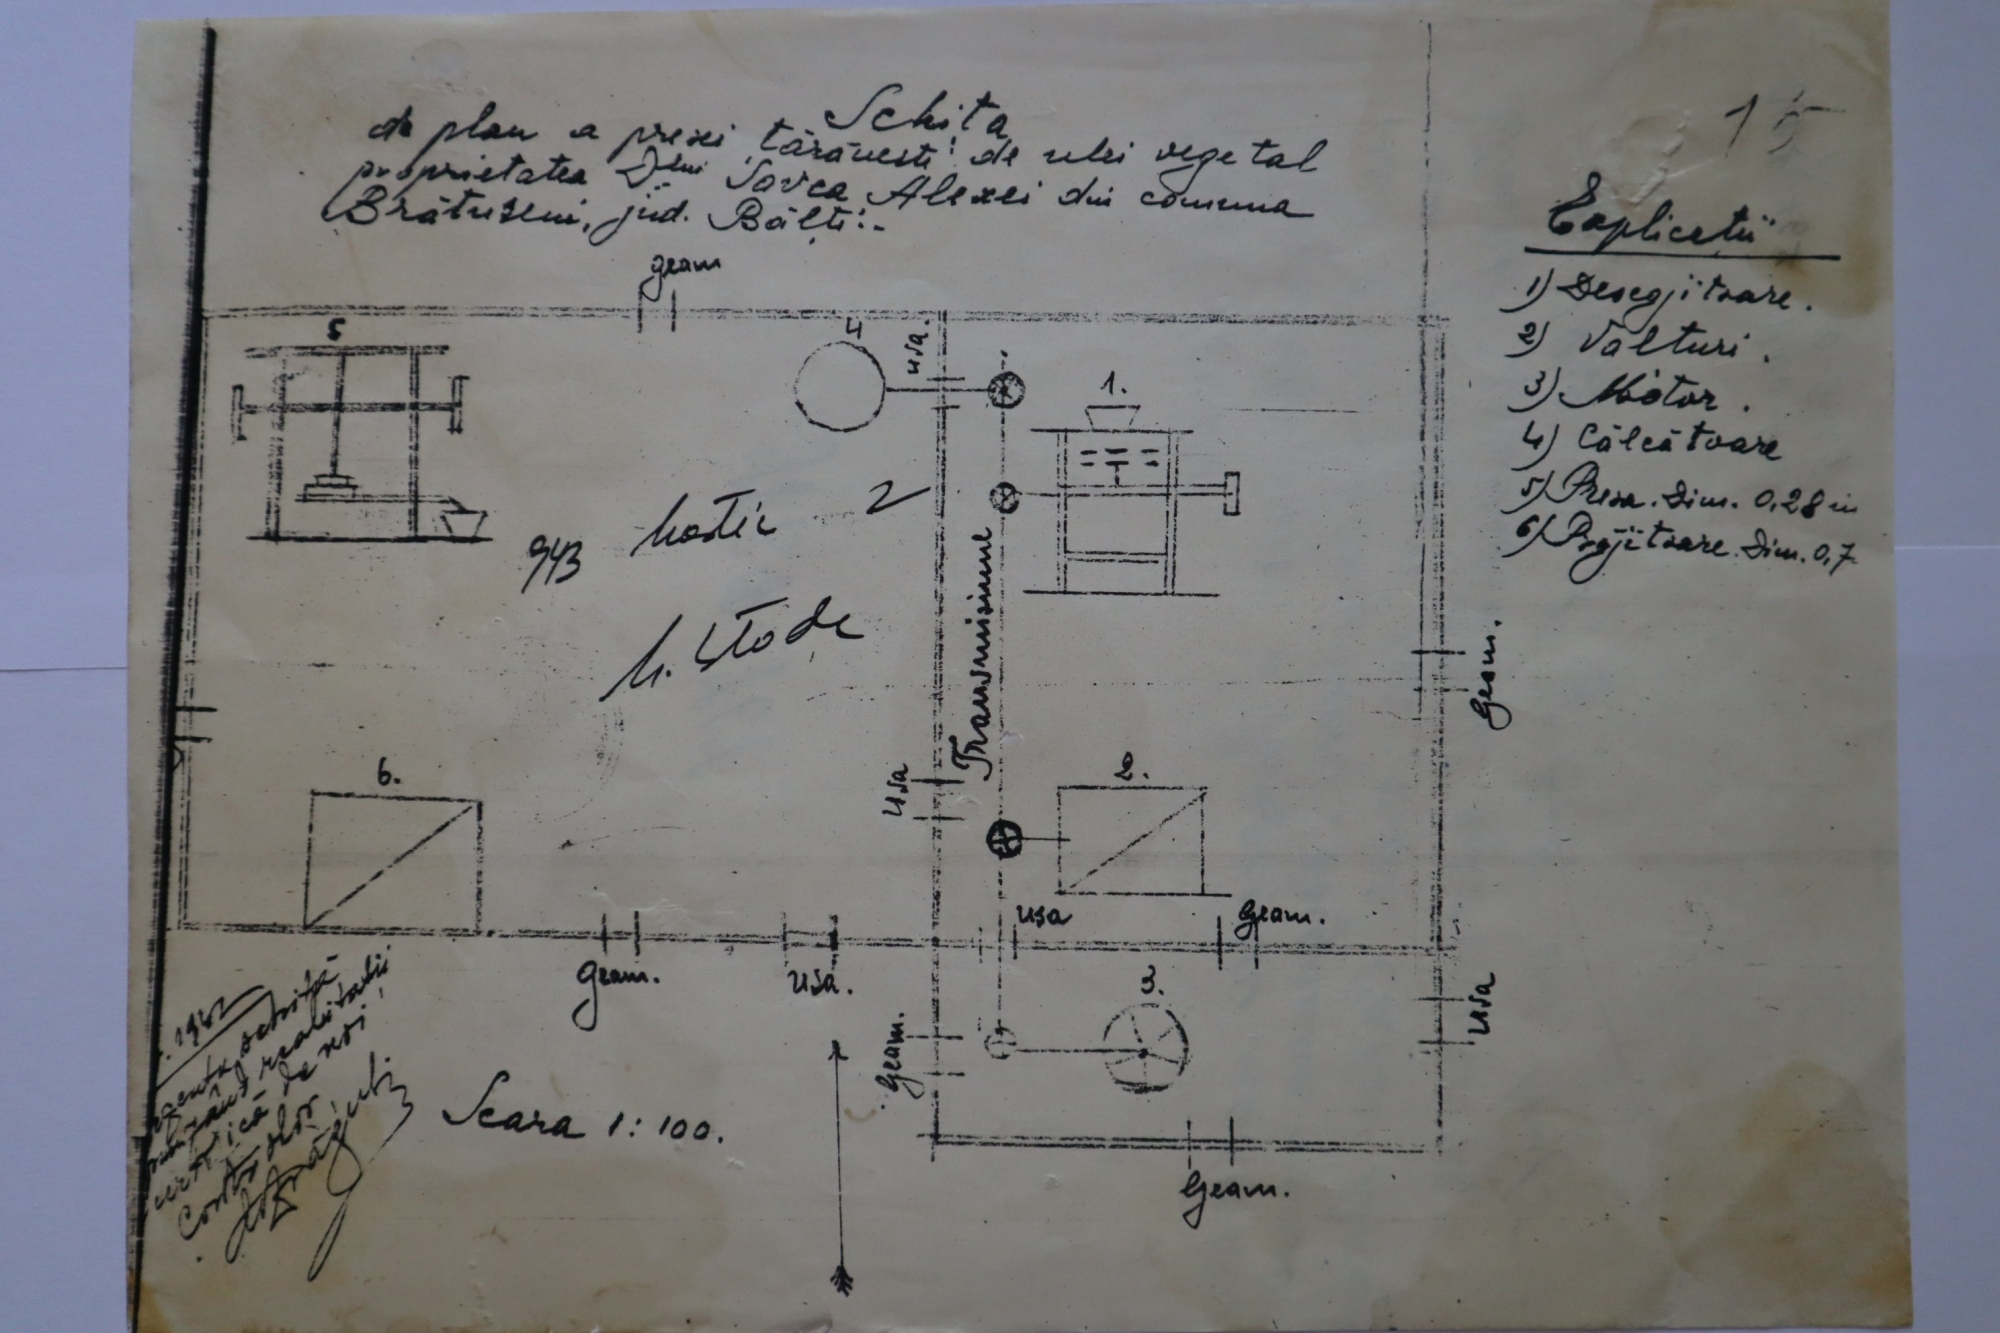 Schita
de plan a presei tărănesti de ulei vegetal
proprietatea Dlui Savca Alexei din comuna
Brătuseni, jud. Bălti:-
15
Explicatii
1) Desegjitoare.
2) Valturi.
3) Motor.
4) Călcătoare
5) Presa. Dim. 0,28 m
6) Prăjitoare. Dim. 0,7
geam
5
4
usa.
1.
2
943
Transmisiune
Geam.
6.
usa
2.
usa
Geam.
Geam.
usa.
3.
usa
Geam.
Scara 1:100.
Geam.
1942
schită
realitatii
certifică de noi
Controlor